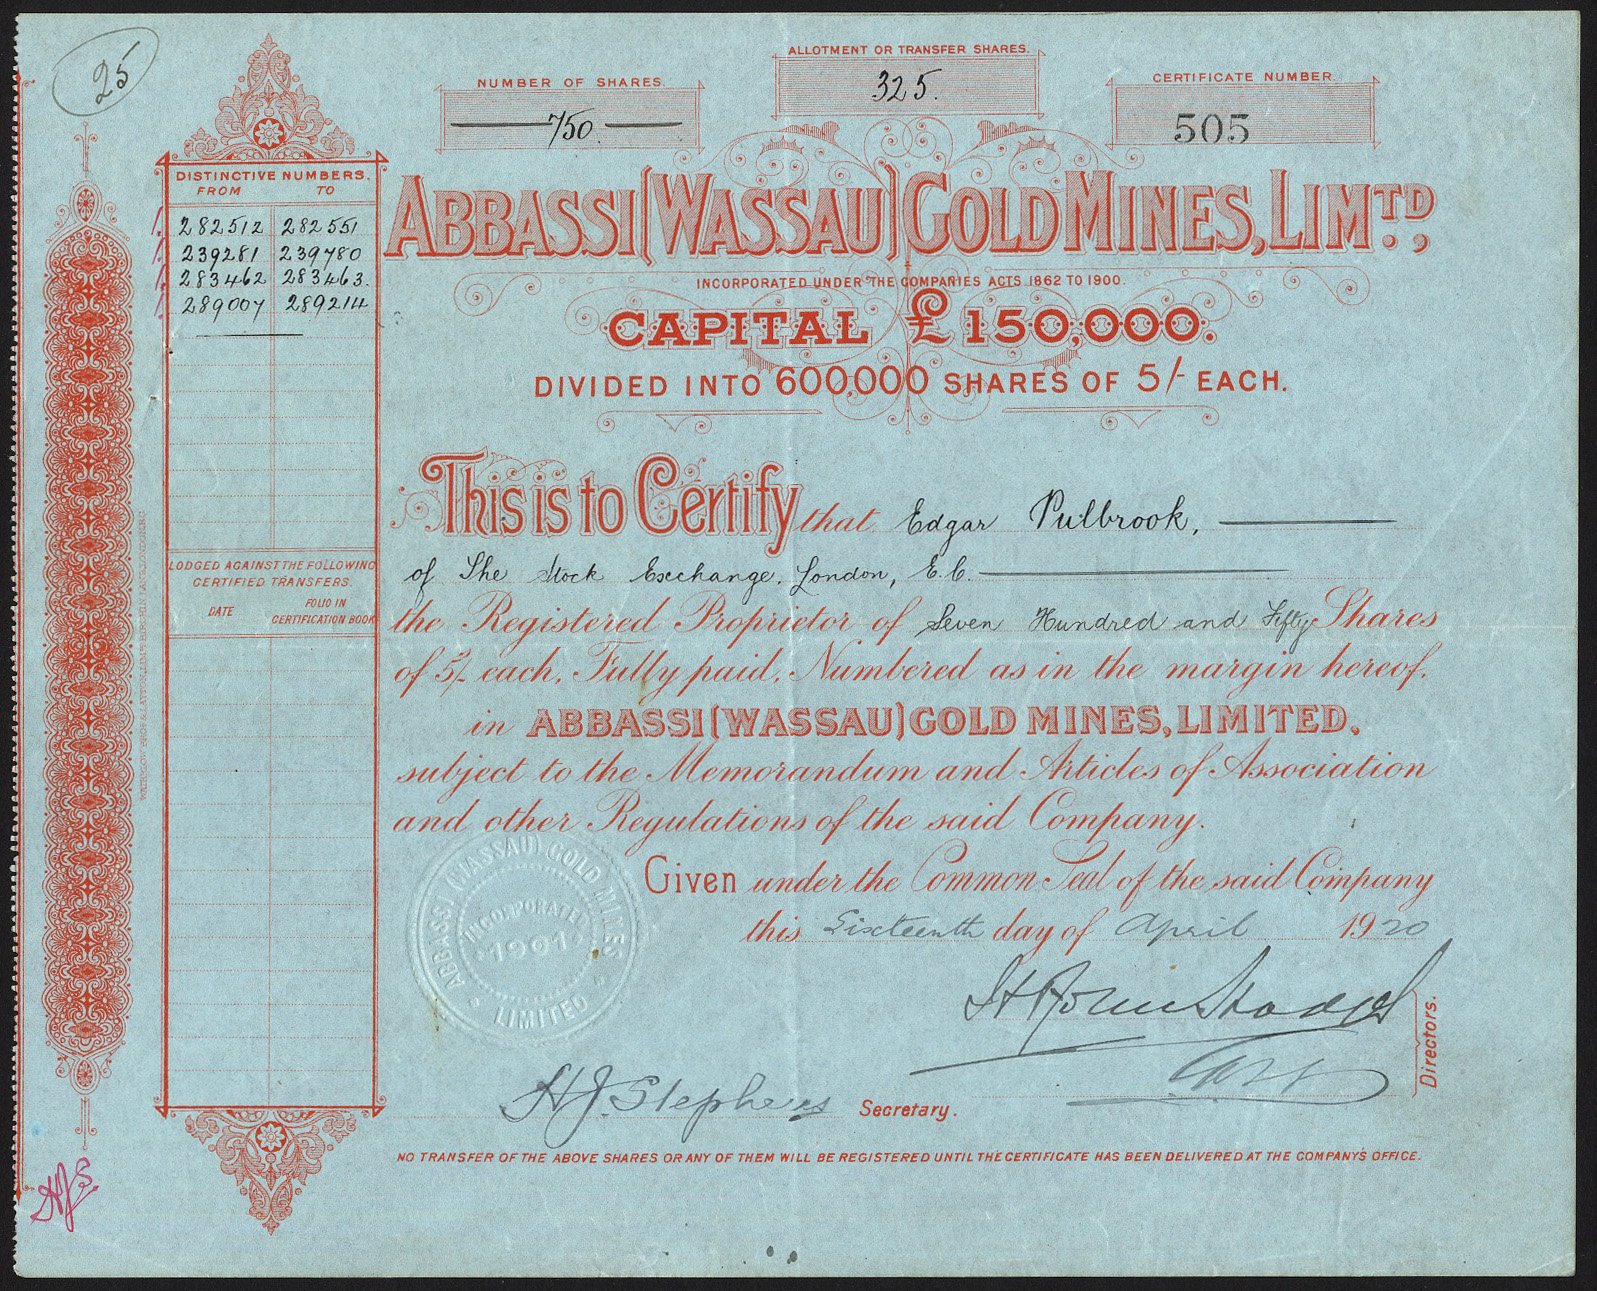 25
NUMBER OF SHARES.
750
ALLOTMENT OR TRANSFER SHARES.
325.
CERTIFICATE NUMBER.
505
DISTINCTIVE NUMBERS.
FROM TO
282512 282551
239281 239780
283462 283463.
289007 289214
LODGED AGAINST THE FOLLOWING
CERTIFIED TRANSFERS.
DATE FOLIO IN CERTIFICATION BOOK
ABBASSI (WASSAU) GOLD MINES, LIMTD.,
INCORPORATED UNDER THE COMPANIES ACTS 1862 TO 1900.
CAPITAL £150,000.
DIVIDED INTO 600,000 SHARES OF 5/- EACH.
This is to Certify that Edgar Pulbrook,
of The Stock Exchange, London, E.C.
the Registered Proprietor of Seven Hundred and Fifty Shares
of 5/- each, Fully paid, Numbered as in the margin hereof.
in ABBASSI (WASSAU) GOLD MINES, LIMITED,
subject to the Memorandum and Articles of Association
and other Regulations of the said Company.
Given under the Common Seal of the said Company
this Sixteenth day of April 1920
ABBASSI (WASSAU) GOLD MINES
LIMITED
INCORPORATED
1901
Directors.
H J. Stephens Secretary.
NO TRANSFER OF THE ABOVE SHARES OR ANY OF THEM WILL BE REGISTERED UNTIL THE CERTIFICATE HAS BEEN DELIVERED AT THE COMPANY'S OFFICE.
HJS